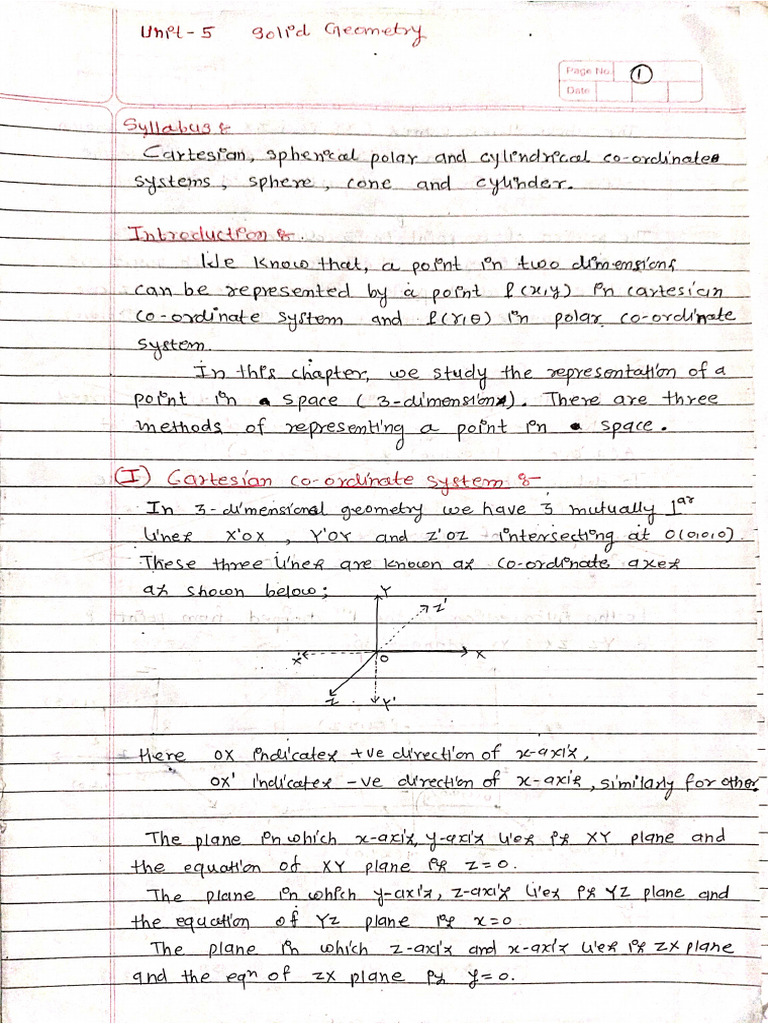 Unit-5 Solid Geometry
Page No. 1
Date
Syllabus :-
Cartesian, spherical polar and cylindrical co-ordinates
systems, sphere, cone and cylinder.
Introduction :-
We know that, a point in two dimensions
can be represented by a point P(x,y) in cartesian
co-ordinate system and P(r,θ) in polar co-ordinate
system.
In this chapter, we study the representation of a
point in space (3-dimension). There are three
methods of representing a point in space.
(I) Cartesian co-ordinate system :-
In 3-dimensional geometry we have 3 mutually ⊥ar
lines X'OX, Y'OY and Z'OZ intersecting at O(0,0,0).
These three lines are known as co-ordinate axes
as shown below;
Y
Z'
X' O X
Z Y'
Here OX indicates +ve direction of x-axis,
OX' indicates -ve direction of x-axis, similarly for other.
The plane in which x-axis, y-axis lies is XY plane and
the equation of XY plane is z=0.
The plane in which y-axis, z-axis lies is YZ plane and
the equation of YZ plane is x=0
The plane in which z-axis and x-axis lies is ZX plane
and the eqn of ZX plane is y=0.